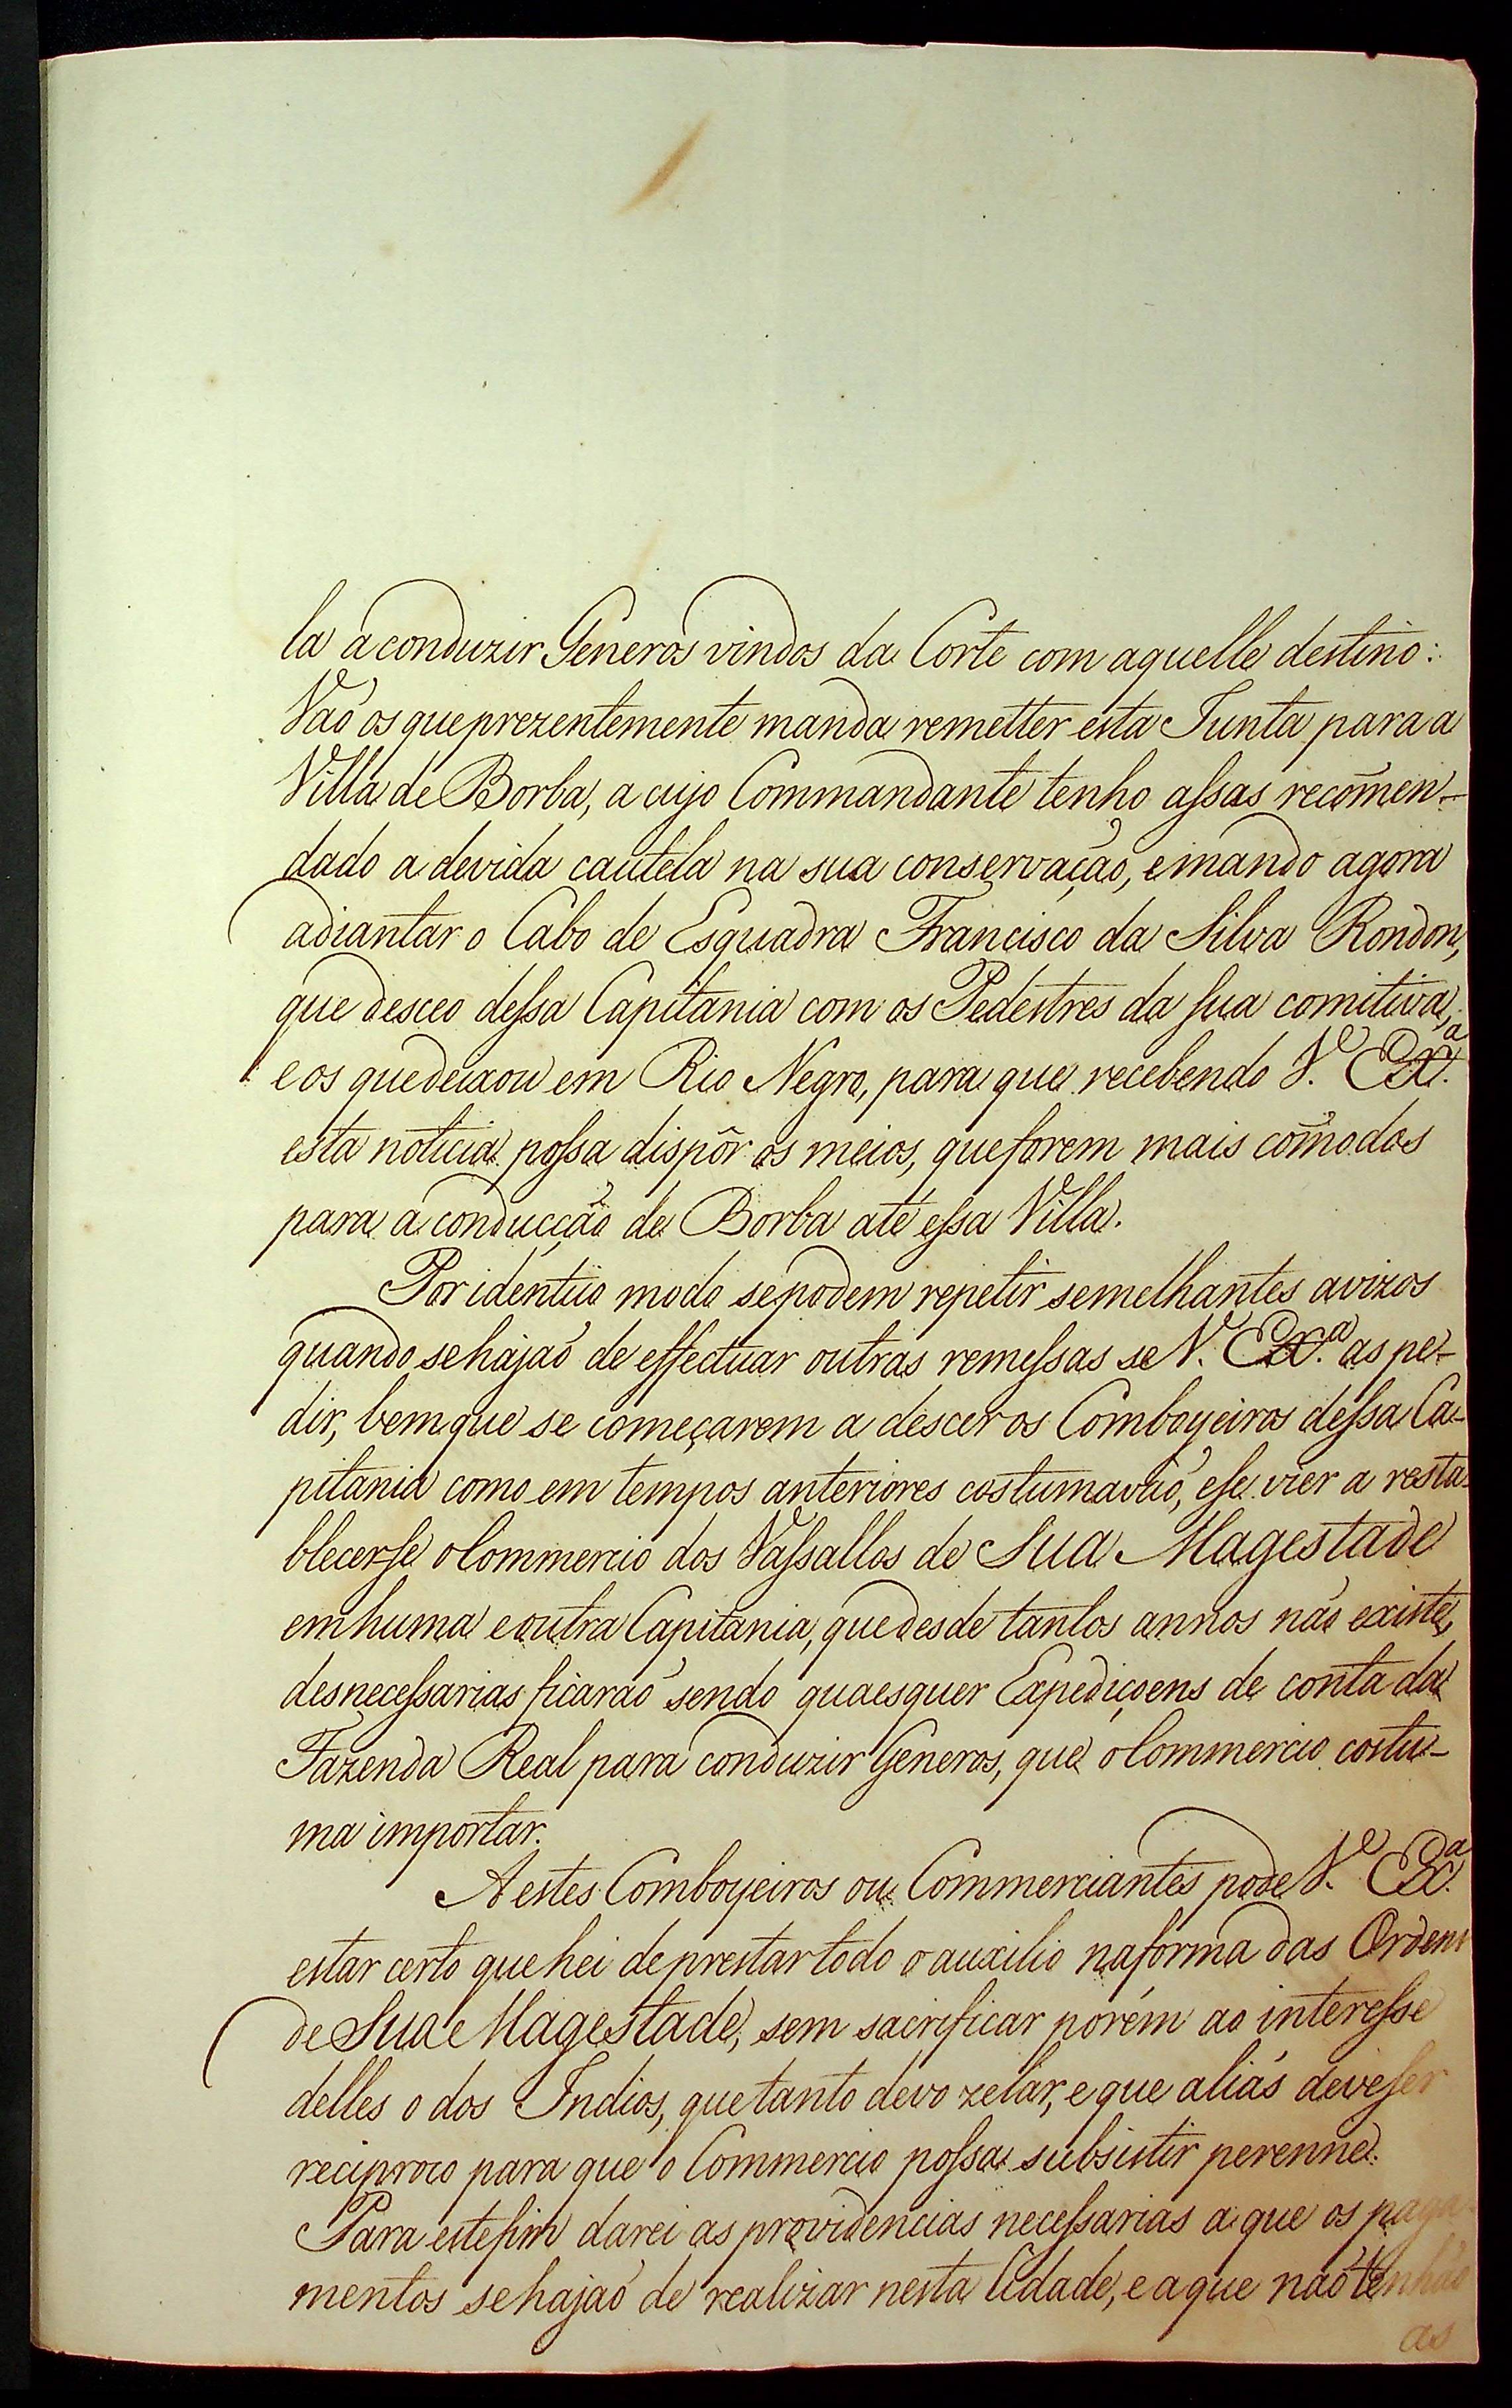 la a conduzir Generos vindos da Corte com aquelle destino:
Vaõ os que prezentemente manda remetter esta Junta para a
Villa de Borba, a cujo Commandante tenho aſsas recõmen-
dado a devida cautéla na sua conservaçaõ, e mando agora
adiantar o Cabo de Esquadra Francisco da Silva Rondon,
que desceo deſsa Capitania com os Pedestres da ſua comitiva,
e os que deixou em Rio Negro, para que recebendo V. Ex.ª
esta noticia poſsa dispôr os meios, que forem mais cõmodos
para a conducçaõ de Borba até eſsa Villa.
Por identico modo se podem repetir semelhantes avizos
quando se hajaõ de effectuar outras remeſsas se V. Ex.ª as pe-
dir, bem que se começarem a descer os Comboyeiros deſsa Ca-
pitania como em tempos anteriores costumavaõ, e ſe vier a resta-
blecerſe o Commercio dos Vaſsallos de Sua Magestade
em huma e outra Capitania, que desde tantos annos naõ existe,
desneceſsarias ficaraõ sendo quaesquer Expediçoens de conta da
Fazenda Real para conduzir Generos, que o Commercio costu-
ma importar.
A estes Comboyeiros ou Commerciantes pode V. Ex.ª
estar certo que hei de prestar todo o auxilio na forma das Ordens
de Sua Magestade, sem sacrificar porém ao intereſse
delles o dos Indios, que tanto devo zelar, e que aliás deve ſer
reciproco para que o Commercio poſsa subsistir perenne.
Para este fim darei as providencias neceſsarias a que os paga
mentos se hajaõ de realizar nesta Cidade, e a que naõ tenhaõ
as